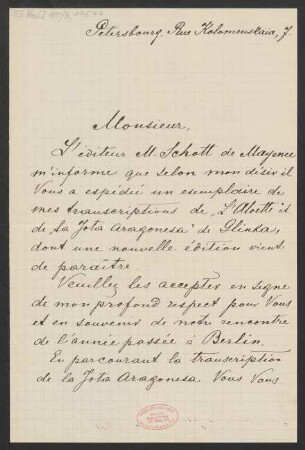 Petersbourg. Rue Kolomenskaia, 7.
Monsieur,
L'éditeur M. Schott de Mayence
m'informe que selon mon désir il
Vous a expédié un exemplaire de
mes transcriptions de "L'Alouette" et
de "la Jota Aragonesa" de Glinka,
dont une nouvelle édition vient
de paraître.
Veuillez les accepter en signe
de mon profond respect pour Vous
et en souvenir de notre rencontre
de l'année passée à Berlin.
En parcourant la transcription
de la Jota Aragonesa Vous Vous